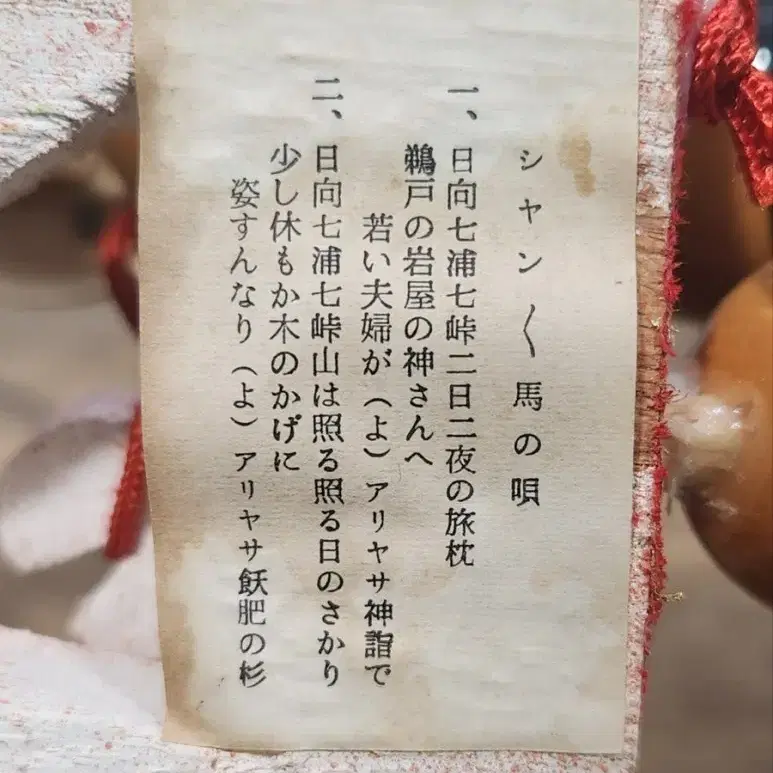 シャン〳〵馬の唄
一、日向七浦七峠二日二夜の旅枕
鵜戸の岩屋の神さんへ
若い夫婦が（よ）アリヤサ神詣で
二、日向七浦七峠山は照る照る日のさかり
少し休もか木のかげに
姿すんなり（よ）アリヤサ飫肥の杉